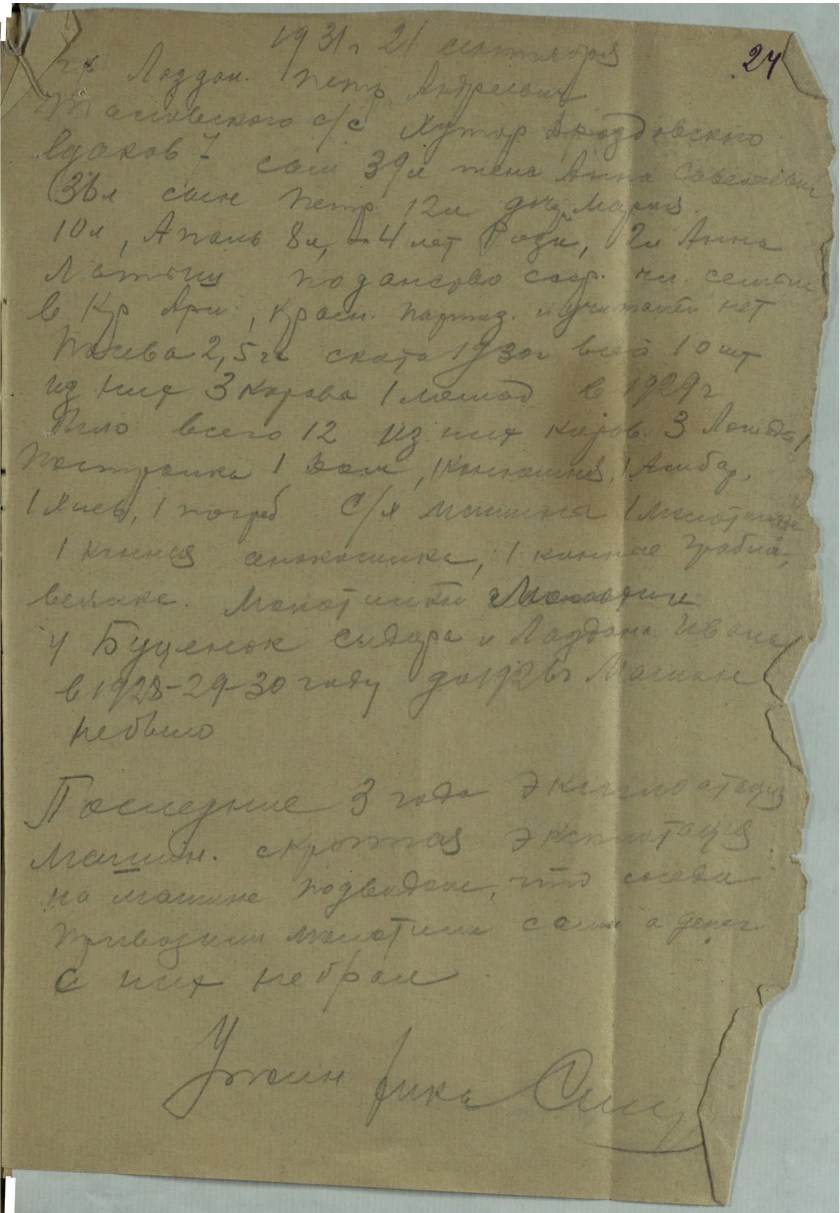 1931 г 21 сентября
24
гр Лаздан. Петр Андреевич
Таловского с/с Хутор Дроздовского
едаков 7 сам 39 л жена Анна Савельевна
36 л сын Петр 12 л дочь Мария
10 л, 8 л, 4 лет Роза, 2 л Анна
Латыш поданство ссср. чл. семьи
в Кр Арм., Красн. партиз. и учителей нет
Посева 2,5 га скота 1930 г всего 10 шт
из них 3 корова 1 лошад в 1929 г
было всего 12 из них коров. 3 Лошадь 1
Постройка 1 дом, 1 конюшня, 1 Амбар,
1 Хлев, 1 погреб С/х машины 1 молотилка
1 конная сенокосилка, 1 конные грабли,
веялка. Молотилкой
у Буценек Сидора и Лаздана Ивана
в 1928-29-30 году до 1926 г Машин
небыло
Последние 3 года эксплоатация
машин. скрытая эксплотация
на машине подвидом, что соседи
привозили молотили сами а денег
с них небрал